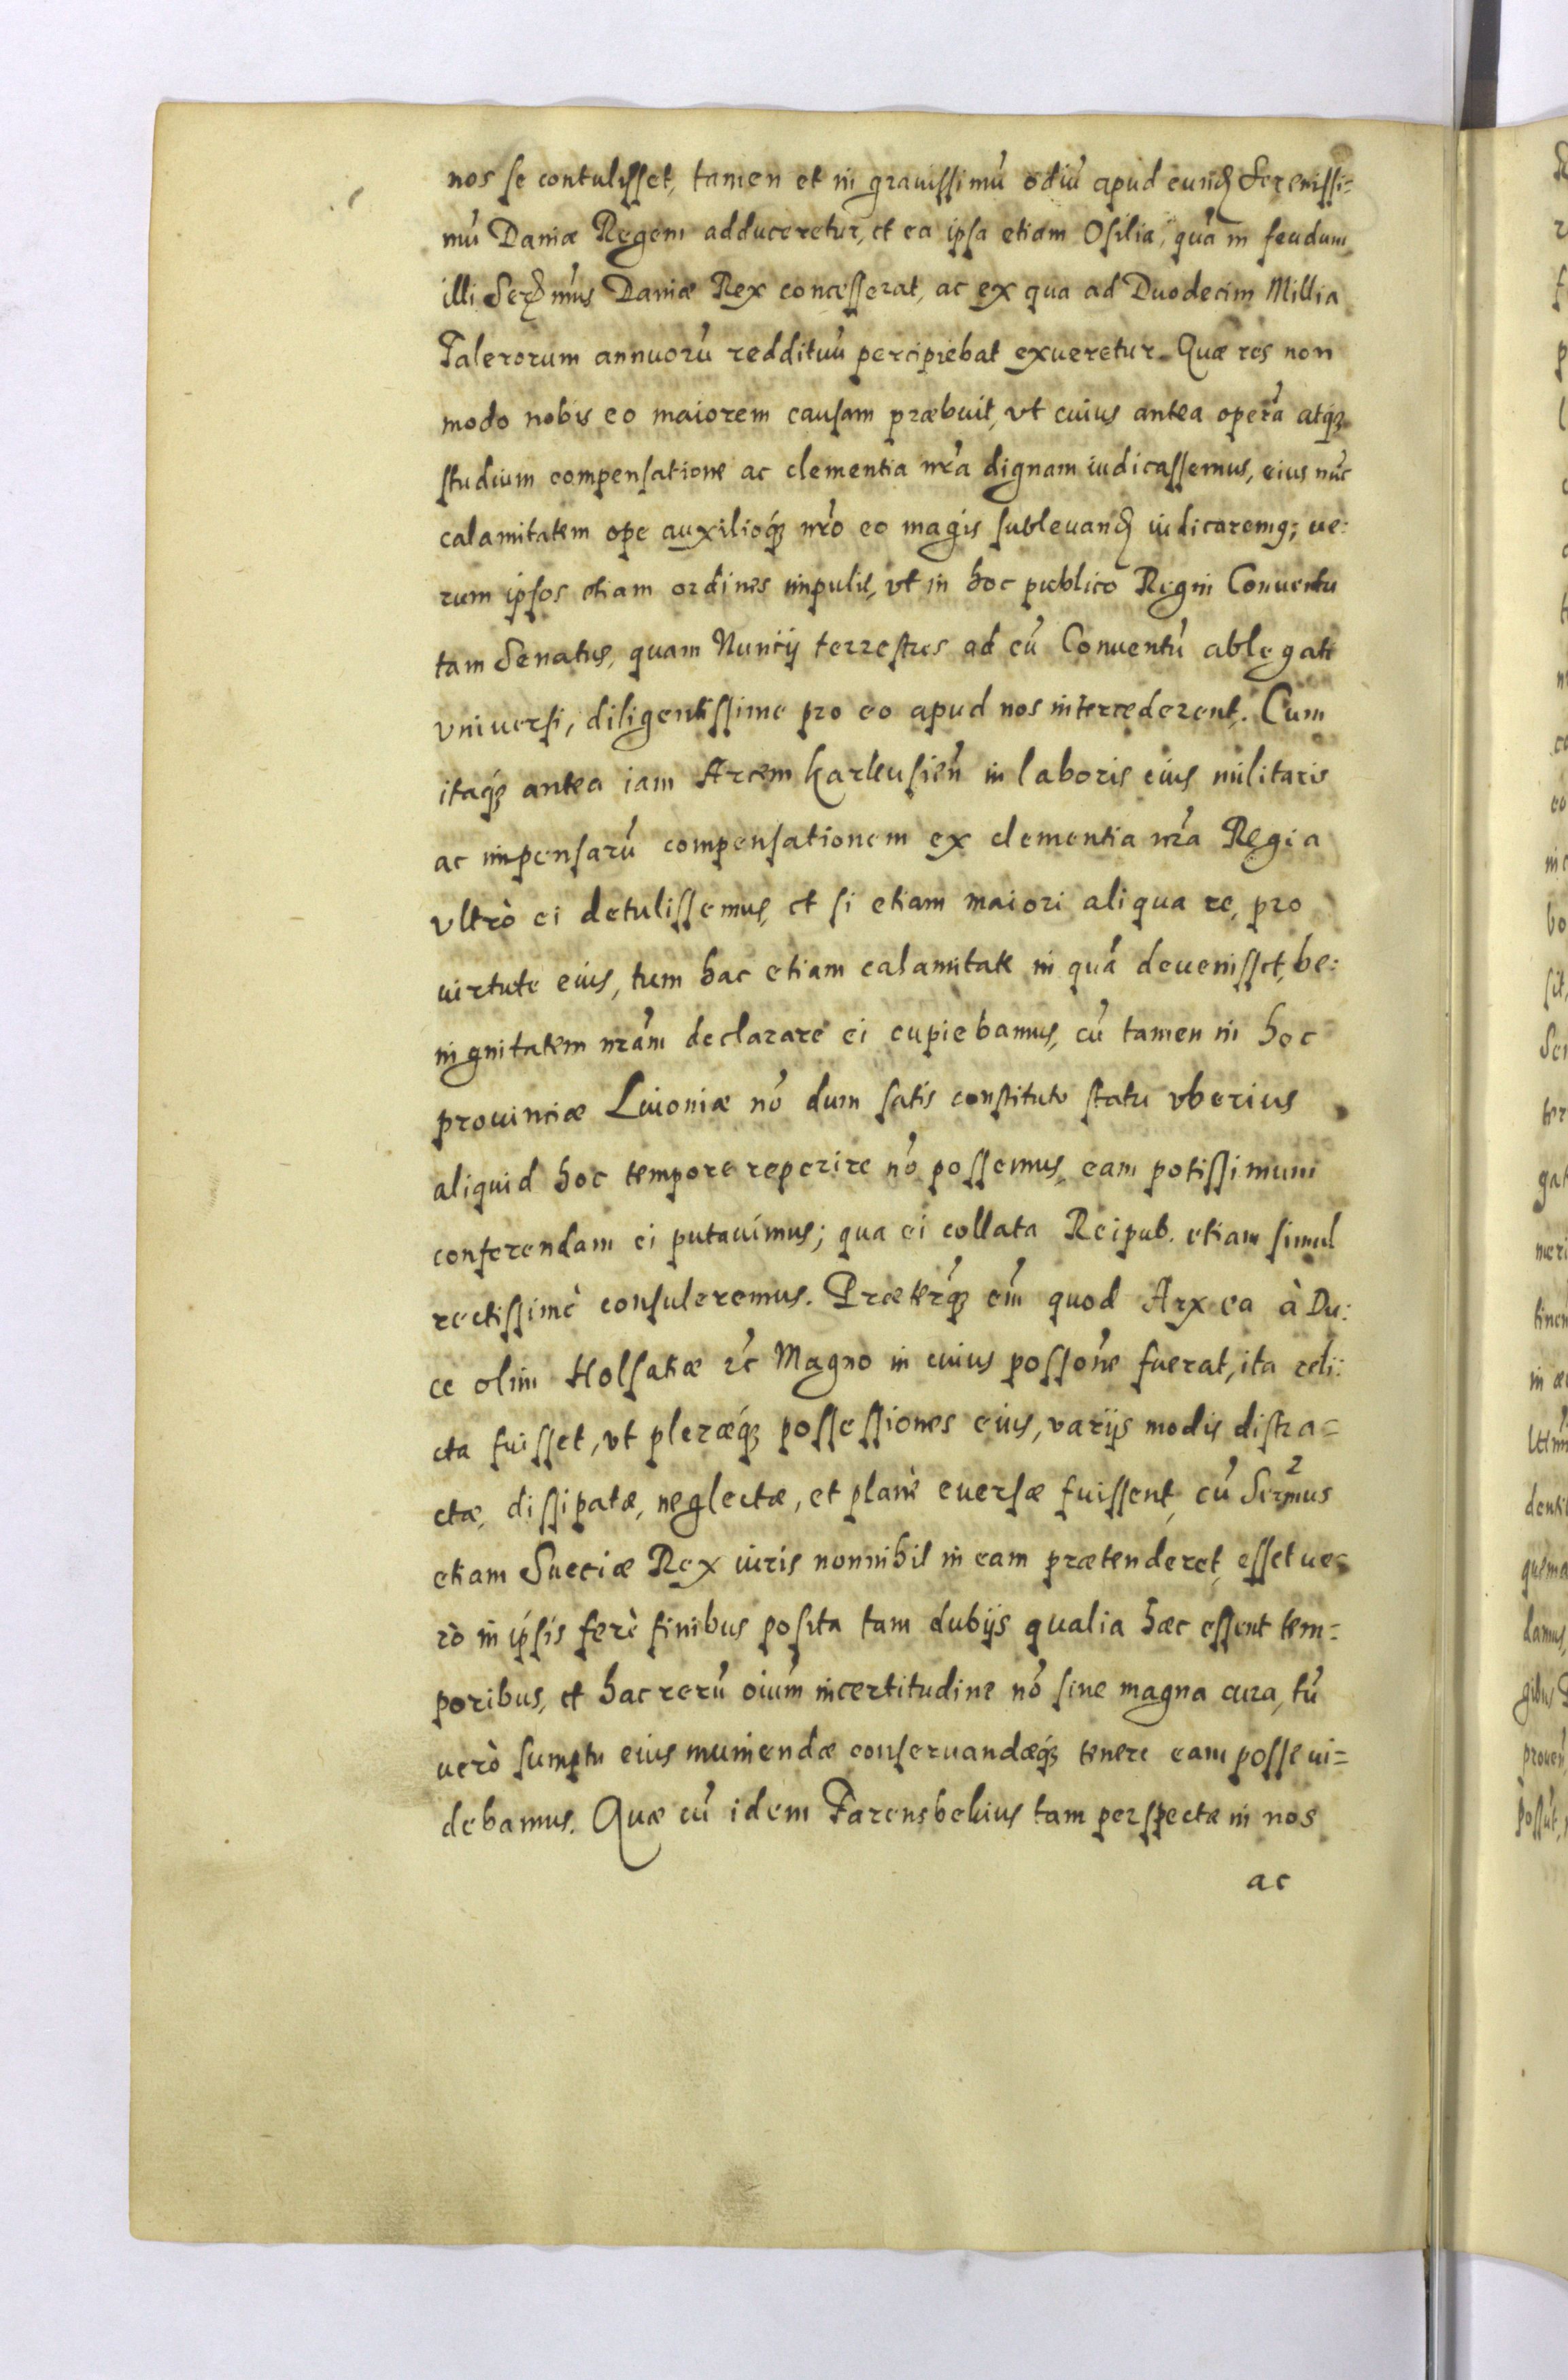 nos se contulisset, tamen et in grauissimũ odiũ apud eund. Serenissi=
mũ Daniæ Regem adduceretur, et ea ipsa etiam Osilia, quã in feudum
illi Ser.mus Daniæ Rex concesserat, ac ex qua ad Duodecim Millia
Talerorum annuorũ reddituũ percipiebat exueretur. Quæ res non
modo nobis eo maiorem causam præbuit, vt cuius antea operã atq3
studium compensatione ac clementia nrã dignam iudicassemus, eius nũc
calamitatem ope auxilioq3 nrõ eo magis subleuand. iudicarem9; ue:
rum ipsos etiam ordines impulit, vt in hoc publico Regni Conuentu
tam Senatus, quam Nuncij terrestres ad eũ Conuentũ ablegati
vniuersi, diligentissime pro eo apud nos intercederent. Cum
itaq3 antea iam Arcem Karkusieñ in laboris eius militaris
ac impensarũ compensationem ex clementia nrã Regia
vltrò ei detulissemus, et si etiam maiori aliqua re, pro
uirtute eius, tum hac etiam calamitate in quã deuenisset, be:
nignitatem nrãm declarare ei cupiebamus, cũ tamen in hoc
prouinciæ Liuoniæ nõ dum satis constituto statu vberius
aliquid hoc tempore reperire nõ possemus, eam potissimum
conferendam ei putauimus; qua ei collata Reipub. etiam simul
rectissimè consuleremus. Præterq3 em̃ quod Arx ea à Du:
ce olim Holsatiæ zc̃ Magno in cuius possoñe fuerat, ita reli:
cta fuisset, vt pleræq3 possessiones eius, varijs modis distra=
ctæ, dissipatæ, neglectæ, et planè euersæ fuissent, cũ Serm̃us
etiam Sueciæ Rex iuris nonnihil in eam prætenderet, esset ue=
rò in ipsis ferè finibus posita tam dubijs qualia hæc essent tem=
poribus, et hac rerũ oiũm incertitudine nõ sine magna cura, tũ
uerò sumptu eius muniendæ conseruandæq3 tenere eam posse ui=
debamus. Quæ cũ idem Farensbekius tam perspectæ in nos
ac